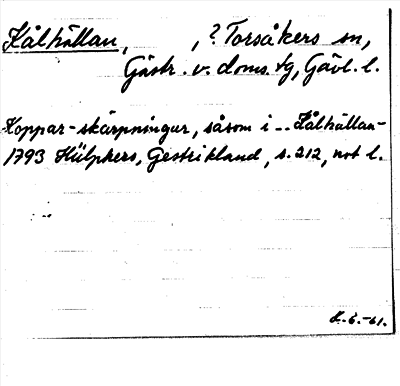 Kålhällan, , ? Torsåkers sn,
Gästr. v. doms. tg, Gävl. l.
Koppar-skärpningar, såsom i -- Kålhällan-
1793 Hülphers, Gestrikland, s. 212, not l.
L.G.-61.